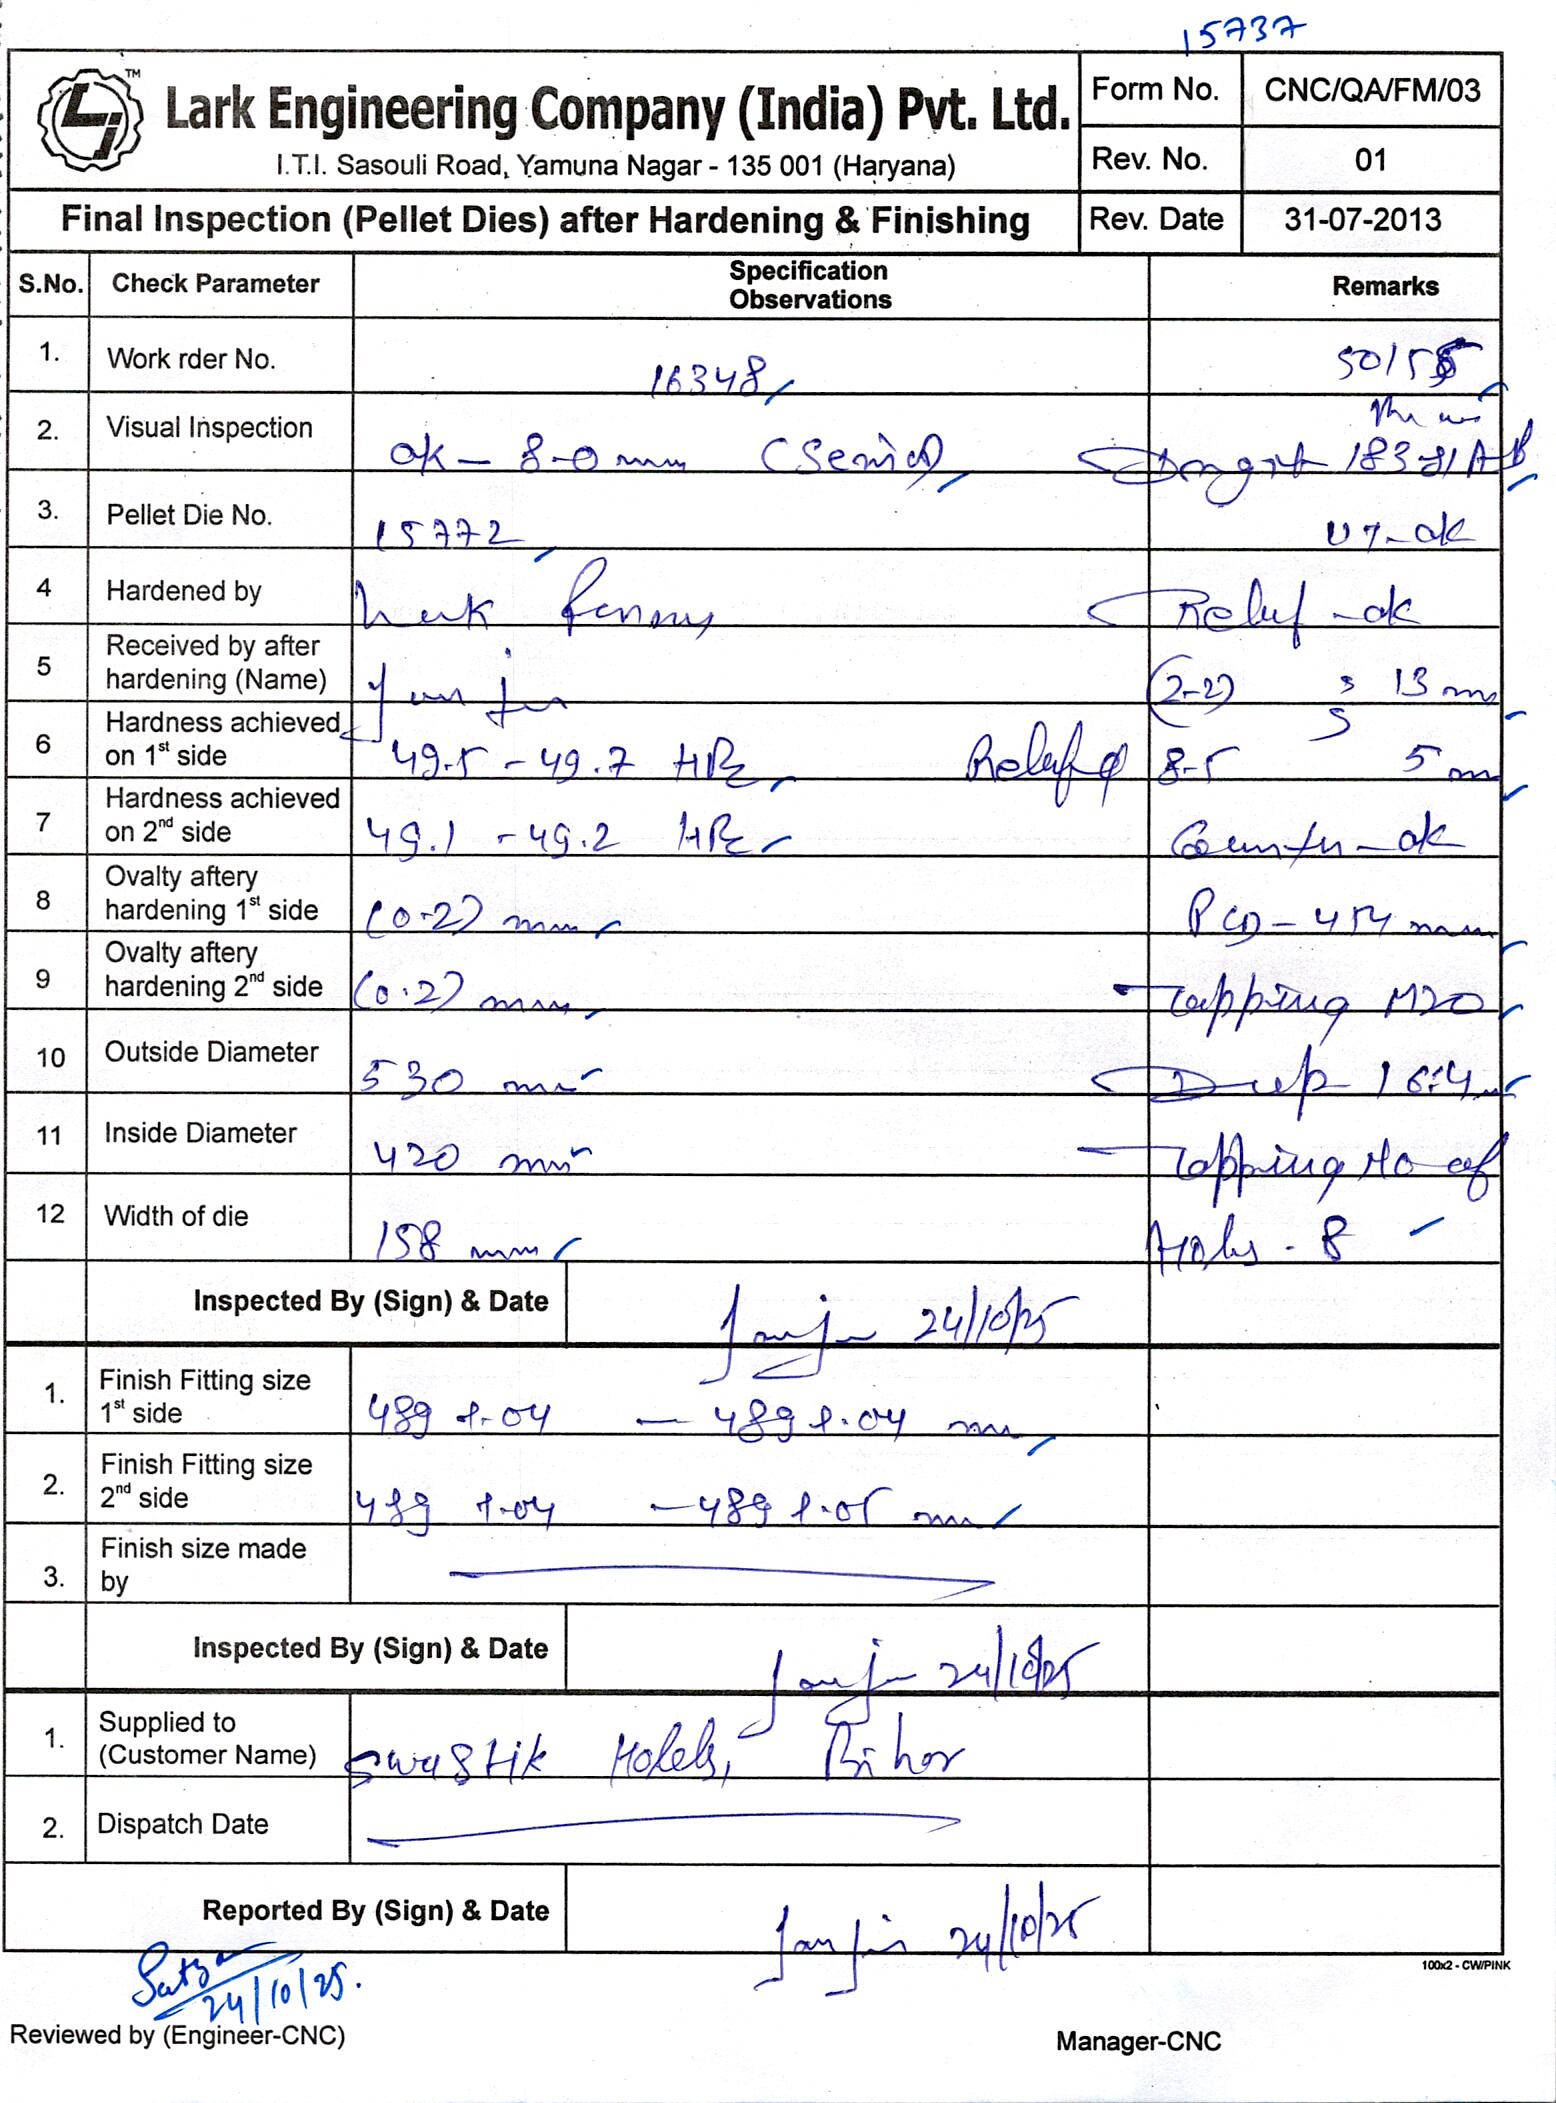 15737
Lark Engineering Company (India) Pvt. Ltd.
TM
I.T.I. Sasouli Road, Yamuna Nagar - 135 001 (Haryana)
Form No. CNC/QA/FM/03
Rev. No. 01
Final Inspection (Pellet Dies) after Hardening & Finishing
Rev. Date 31-07-2013
S.No. Check Parameter Specification Observations Remarks
1. Work rder No. 16348 50/55
2. Visual Inspection ok - 8-0 mm 18381 A-B
3. Pellet Die No. 15772 ok
4 Hardened by Relief - ok
5 Received by after hardening (Name) (2-2) 13 mm
6 Hardness achieved on 1st side 49.5 - 49.7 HRc Relief φ 8-5 5 mm
7 Hardness achieved on 2nd side 49.1 - 49.2 HRc Counter - ok
8 Ovalty aftery hardening 1st side (0.2) mm PCD - 454 mm
9 Ovalty aftery hardening 2nd side (0.2) mm Tapping M20
10 Outside Diameter 530 mm Deep
11 Inside Diameter 420 mm Tapping No of
12 Width of die 158 mm Holes - 8
Inspected By (Sign) & Date 24/10/25
1. Finish Fitting size 1st side 489 +.04 - 489 +.04 mm
2. Finish Fitting size 2nd side 489 +.04 - 489 +.05 mm
3. Finish size made by
Inspected By (Sign) & Date 24/10/25
1. Supplied to (Customer Name) Swastik Hotels, Bihar
2. Dispatch Date
Reported By (Sign) & Date 24/10/25
100x2 - CW/PINK
24/10/25.
Reviewed by (Engineer-CNC) Manager-CNC